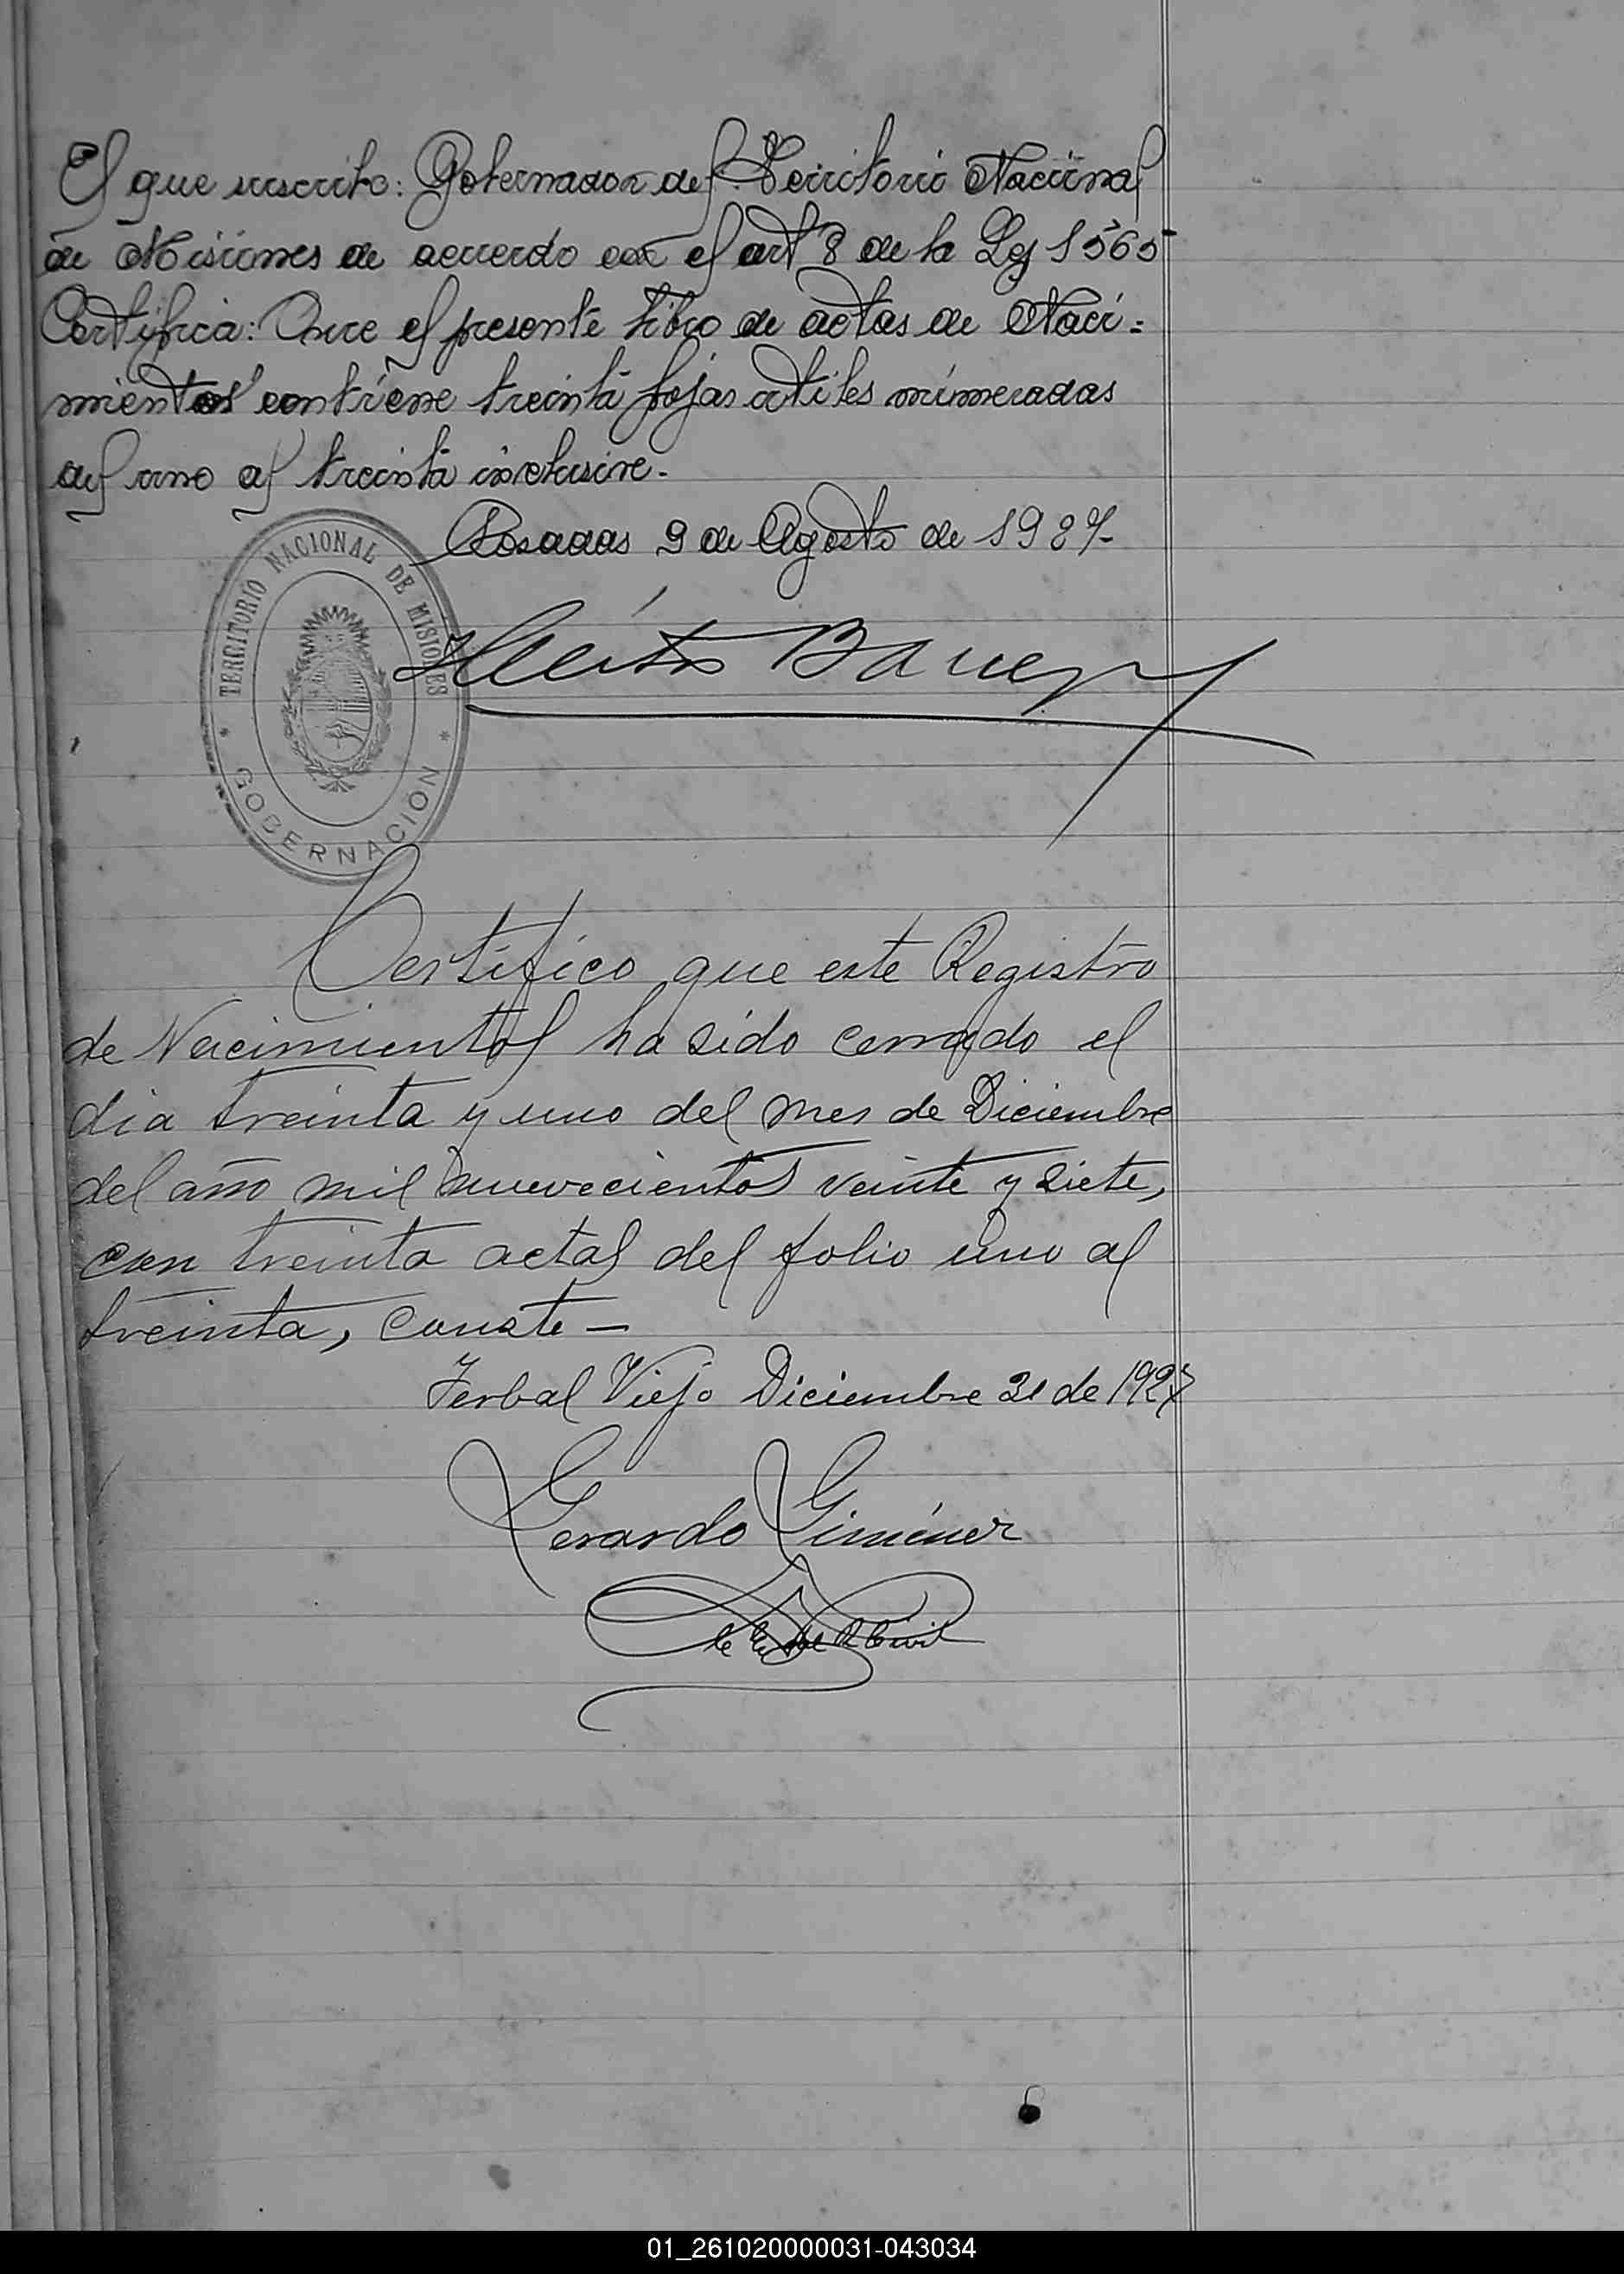 El que suscribe: Gobernador del Territorio Nacional
de Misiones de acuerdo con el art 8 de la Ley 1565
Certifica: Que el presente libro de actas de Naci=
mientos contiene treinta fojas utiles númeradas
del uno al treinta inclusive.
Posadas 9 de Agosto de 1927-
TERRITORIO NACIONAL DE MISIONES
* GOBERNACION *
Certifico que este Registro
de Nacimientos ha sido cerrado el
dia treinta y uno del mes de Diciembre
del año mil nuevecientos veinte y siete,
con treinta actas del folio uno al
treinta, conste—
Yerbal Viejo Diciembre 31 de 1927
Gerardo Giménez
R Civil
01_261020000031-043034